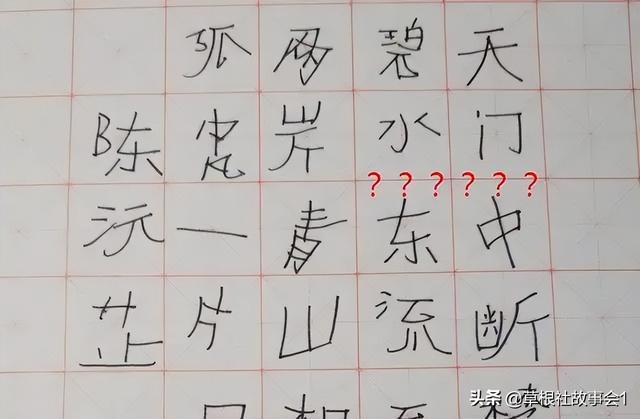 天门中断楚
碧水东流至
两岸青山相
孤帆一片日
陈沅芷
? ? ? ? ? ?
头条 @草根社故事会1